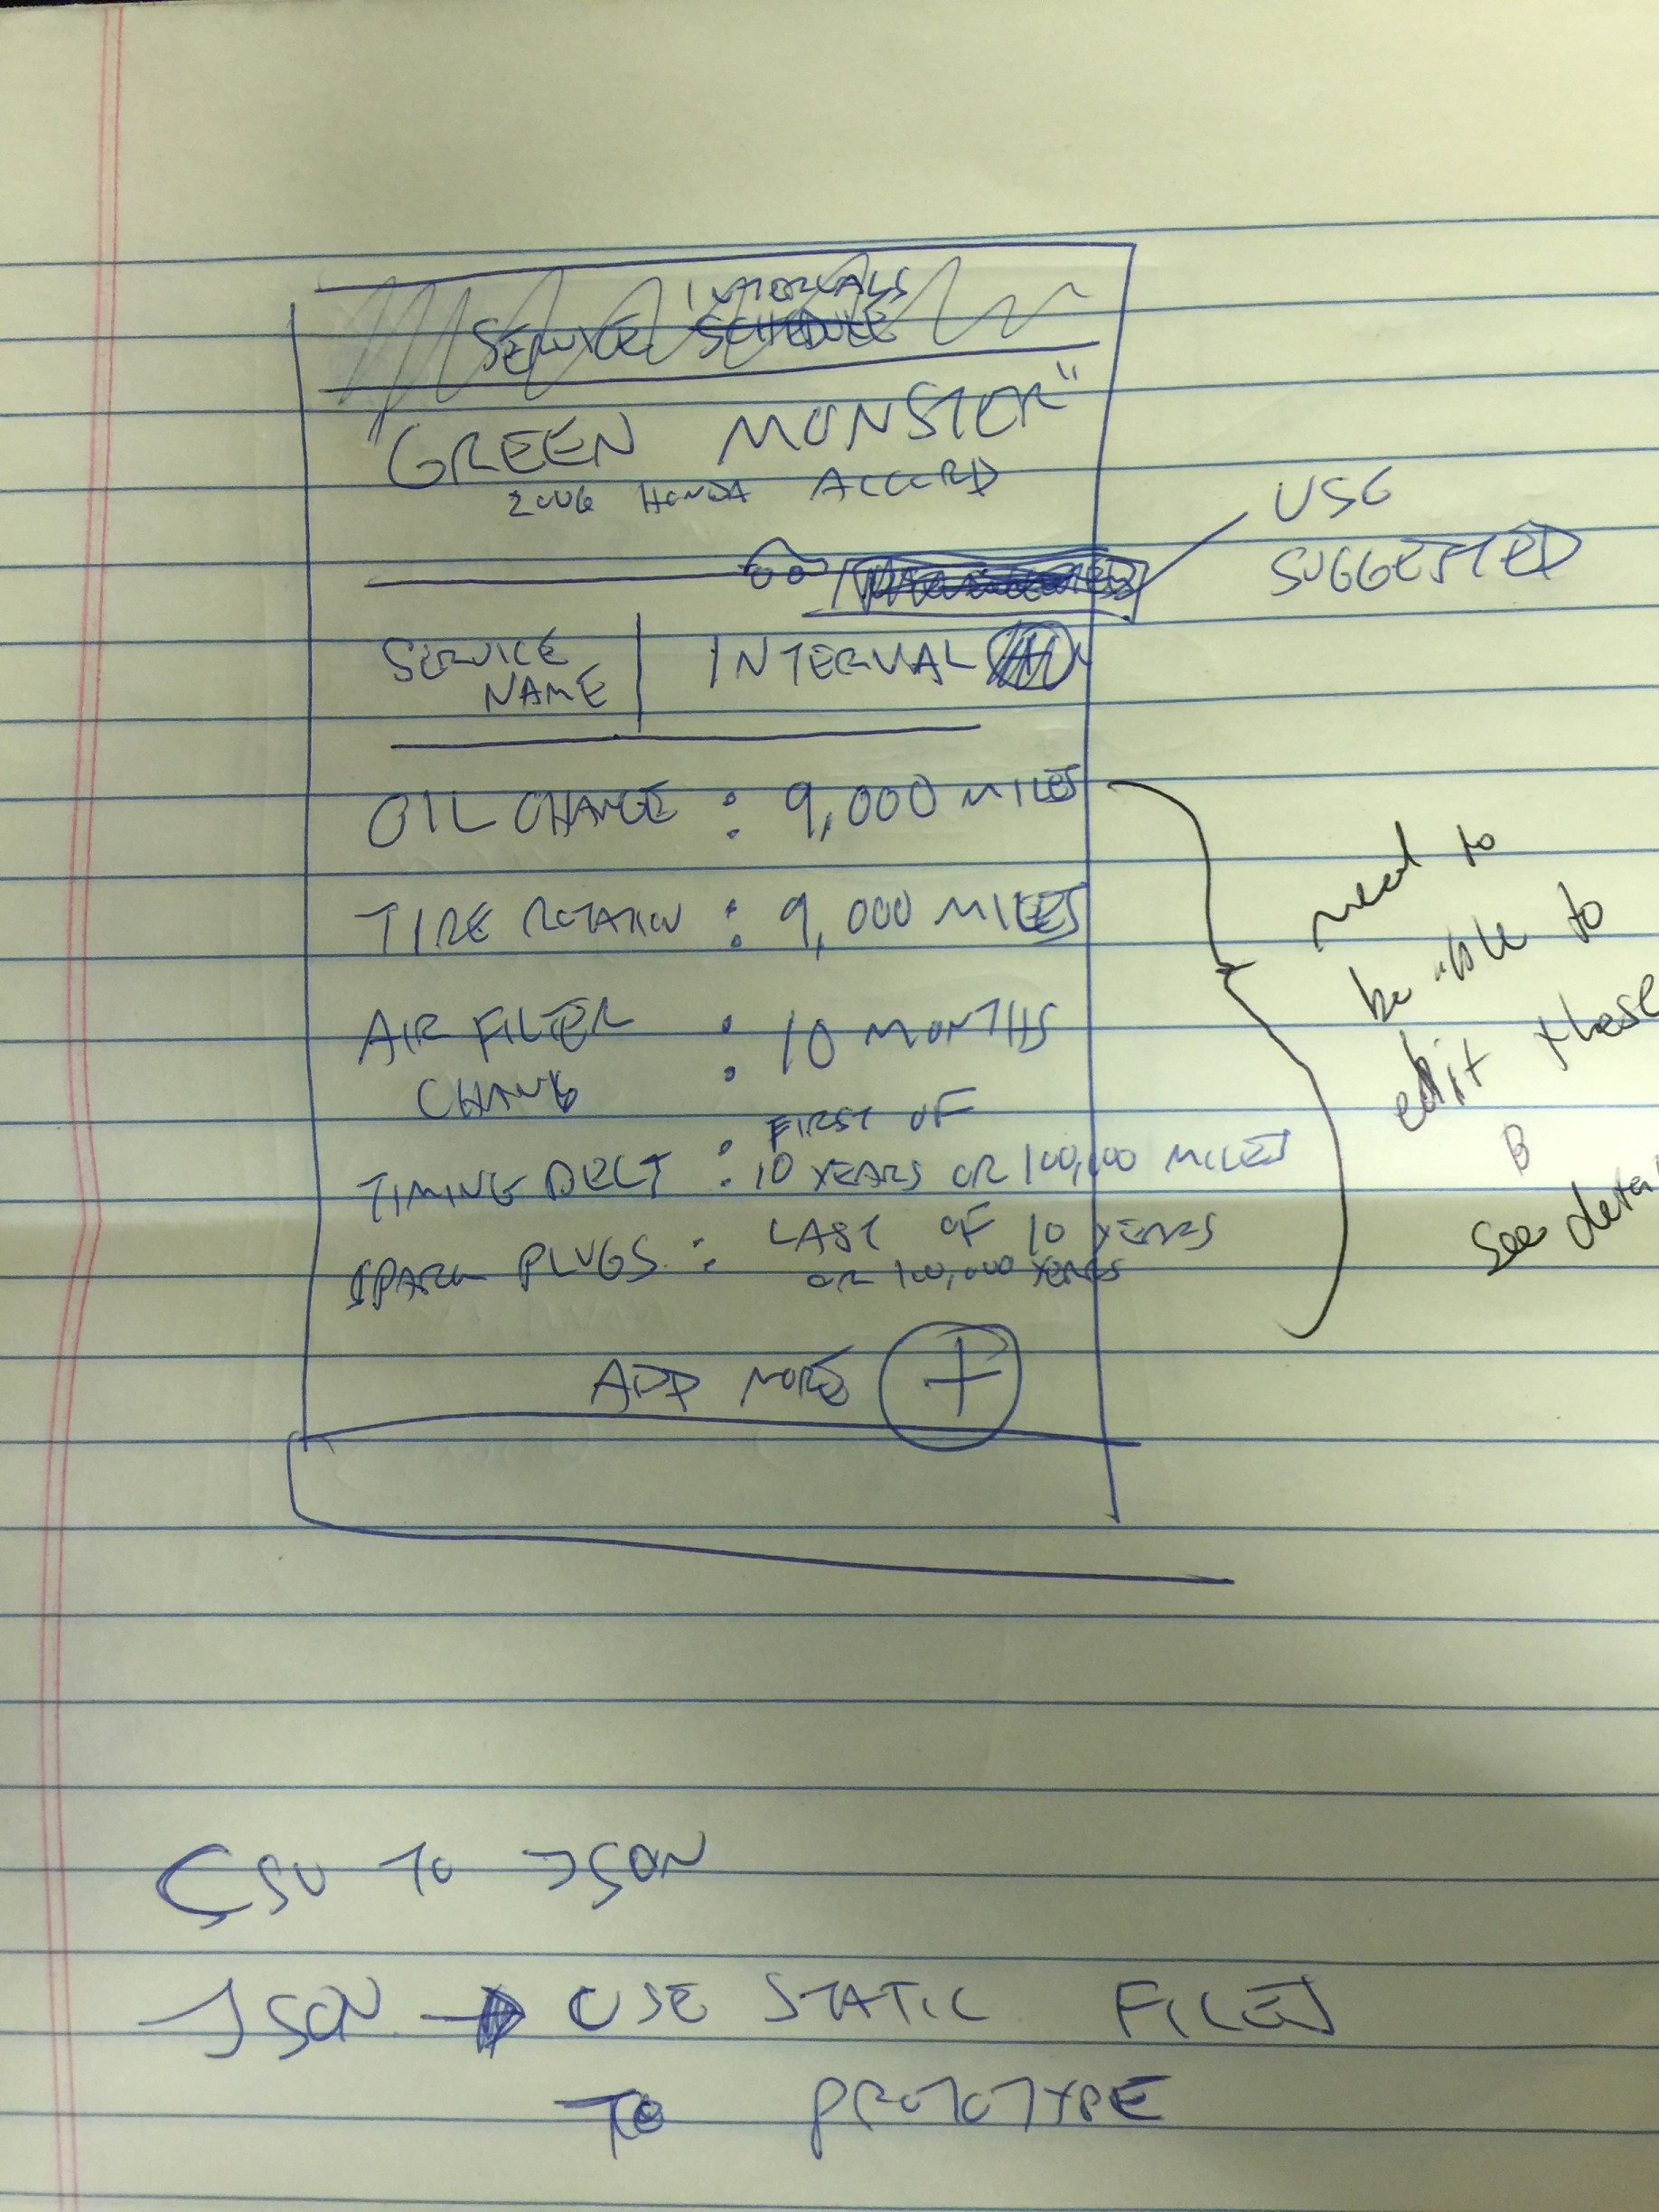 INTERVALS
SERVICE SCHEDULE
"GREEN MONSTER"
2006 HONDA ACCORD
USE
SUGGESTED
SERVICE
NAME
INTERVAL
OIL CHANGE : 9,000 MILES
TIRE ROTATION : 9,000 MILES
AIR FILTER : 10 MONTHS
CHANG
TIMING BELT : FIRST OF
10 YEARS OR 100,000 MILES
SPARK PLUGS : LAST OF 10 YEARS
OR 100,000 YEARS
ADD MORE +
need to
be able to
edit these
B
see
CSV TO JSON
JSON → USE STATIC FILES
TO PROTOTYPE